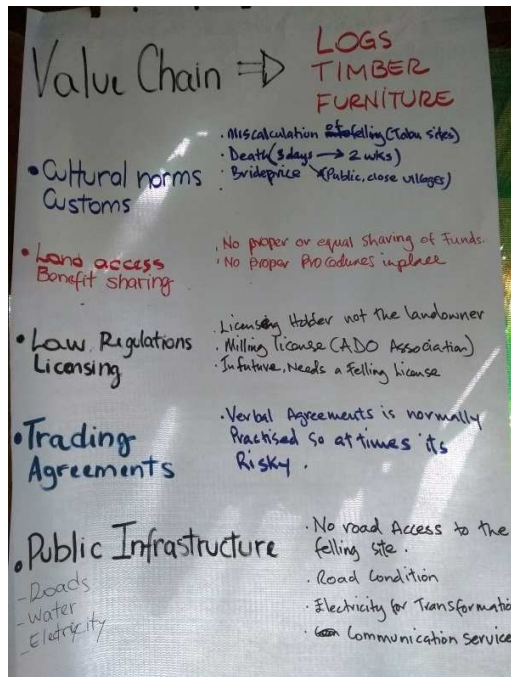 Value Chain ⇒ LOGS
TIMBER
FURNITURE
• Cultural norms
Customs
• Miscalculation of felling (Tabu sites)
• Death (3 days → 2 wks)
• Brideprice (Public, close villages)
• Land access
Benefit sharing
• No proper or equal sharing of Funds.
• No Proper Procedures inplace
• Law Regulations
Licensing
• Licensing Holder not the landowner
• Milling license (ADO Association)
• Infuture, Needs a Felling License
• Trading
Agreements
• Verbal Agreements is normally
Practised so at times its
Risky.
• Public Infrastructure
- Roads
- Water
- Eletricity
• No road Access to the
felling site.
• Road Condition
• Electricity for Transformatio
• Communication service